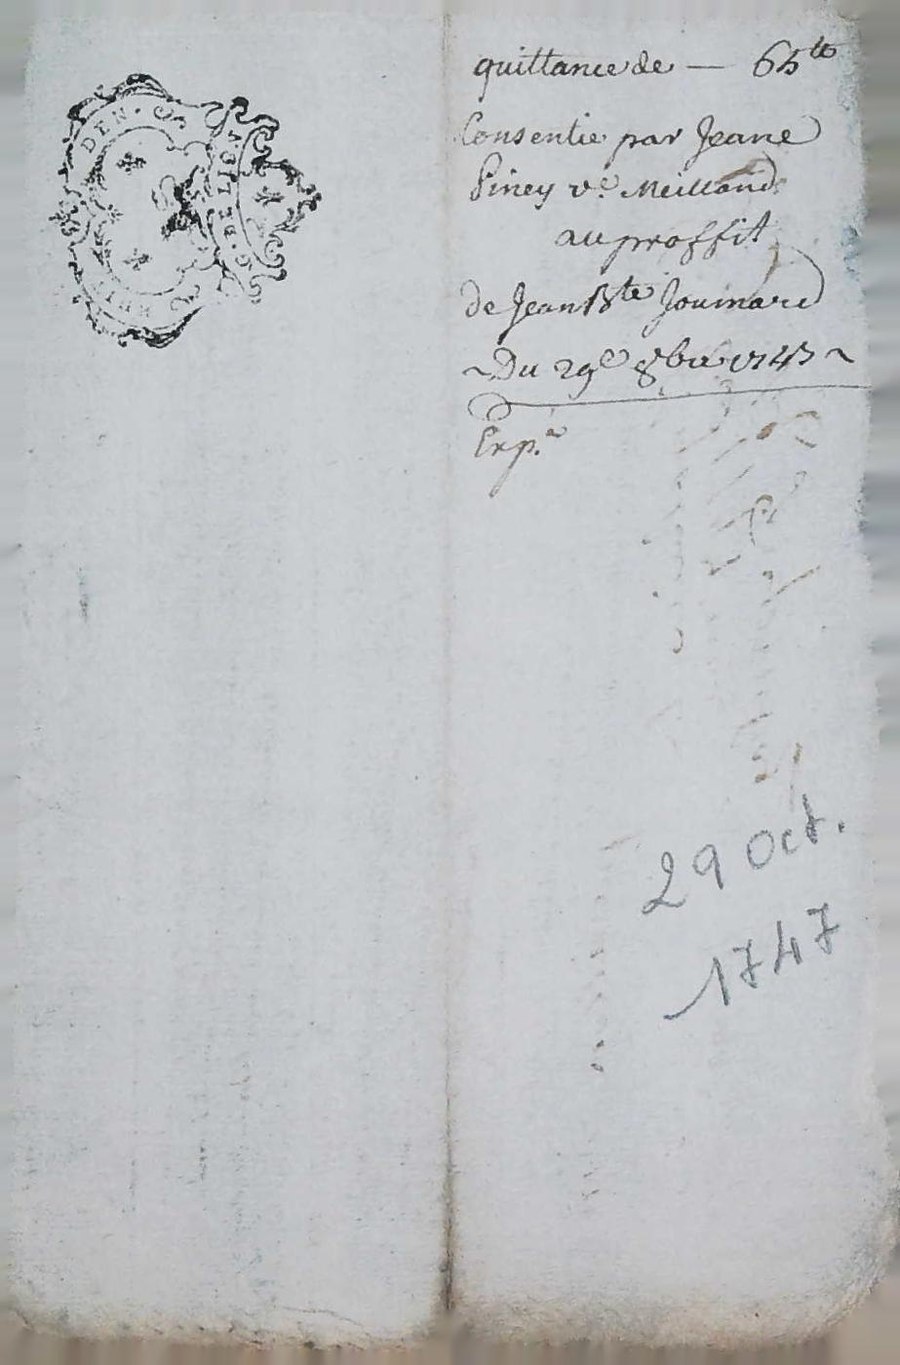 DEN.
quittance de — 65 ᵗᵗ
Consentie par Jeane
Piney vᵉ. Meilland
au proffit
de Jean Bᵗᵉ Joumard
~ Du 29ᵉ 8bre 1747 ~
Exp.ᵉ
29 Oct.
1747